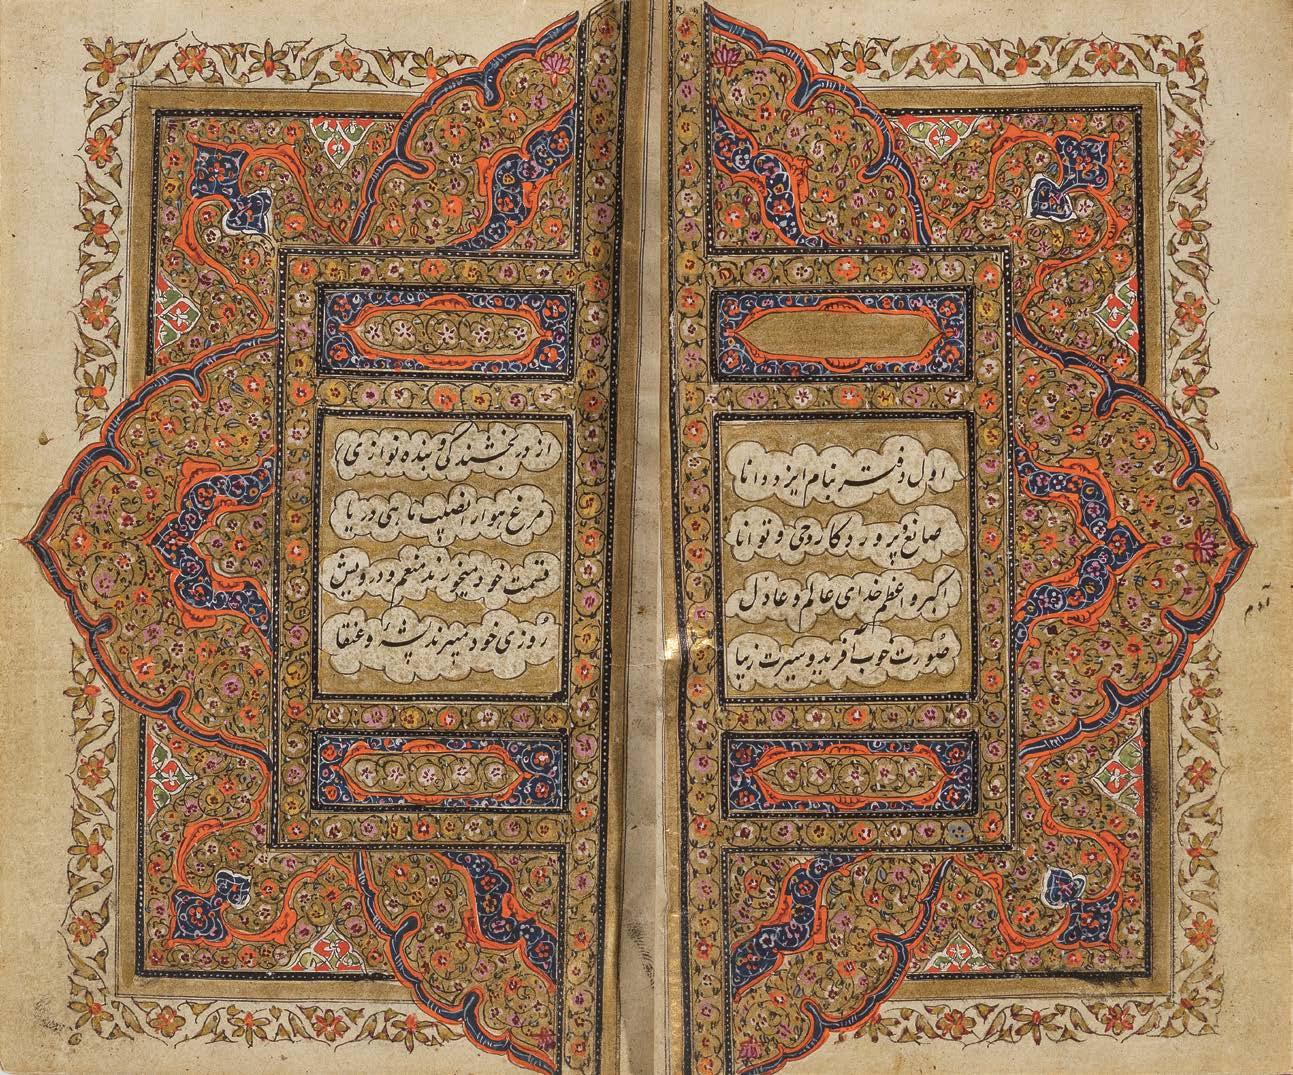 اول دفتر بنام ایزد دانا
صانع و پروردگار حی و توانا
اکبر و اعظم خدای عالم و عادل
صورت خوب آفرید و سیرت زیبا
از در بخشندگی و بنده نوازی
مرغ هوا را نصیب ماهی دریا
قسمت خود میخورند منعم و درویش
روزی خود میبرند پشهٔ و عنقا